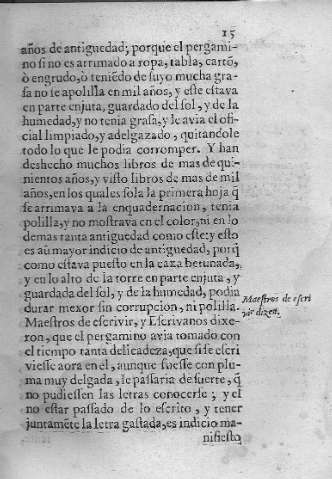 15
años de antiguedad; porque el pergami-
no si no es arrimado a ropa, tabla, cartõ,
ò engrudo, ò teniẽdo de suyo mucha gra-
sa no se apolilla en mil años, y este estava
en parte enjuta, guardado del sol, y de la
humedad, y no tenia grasa, y le avia el ofi-
cial limpiado, y adelgazado, quitandole
todo lo que le podia corromper. Y han
deshecho muchos libros de mas de qui-
nientos años, y visto libros de mas de mil
años, en los quales sola la primera hoja q̃
se arrimava a la enquadernacion, tenia
polilla, y no mostrava en el color, ni en lo
demas tanta antiguedad como este: y esto
es aũ mayor indicio de antiguedad, porq̃
como estava puesto en la caxa betunada,
y en lo alto de la torre en parte enjuta, y
guardada del sol, y de la humedad, podia
durar mexor sin corrupcion, ni polilla.
Maestros de escrivir, y Escrivanos dixe-
ron, que el pergamino avia tomado con
el tiempo tanta delicadeza, que si se escri
viesse aora en el, aunque fuesse con plu-
ma muy delgada, le passaria de suerte, q̃
no pudiessen las letras conocerse; y el
no estar passado de lo escrito, y tener
juntamẽte la letra gastada, es indicio ma-
nifiesto
Maestros de escri
vir dizen.